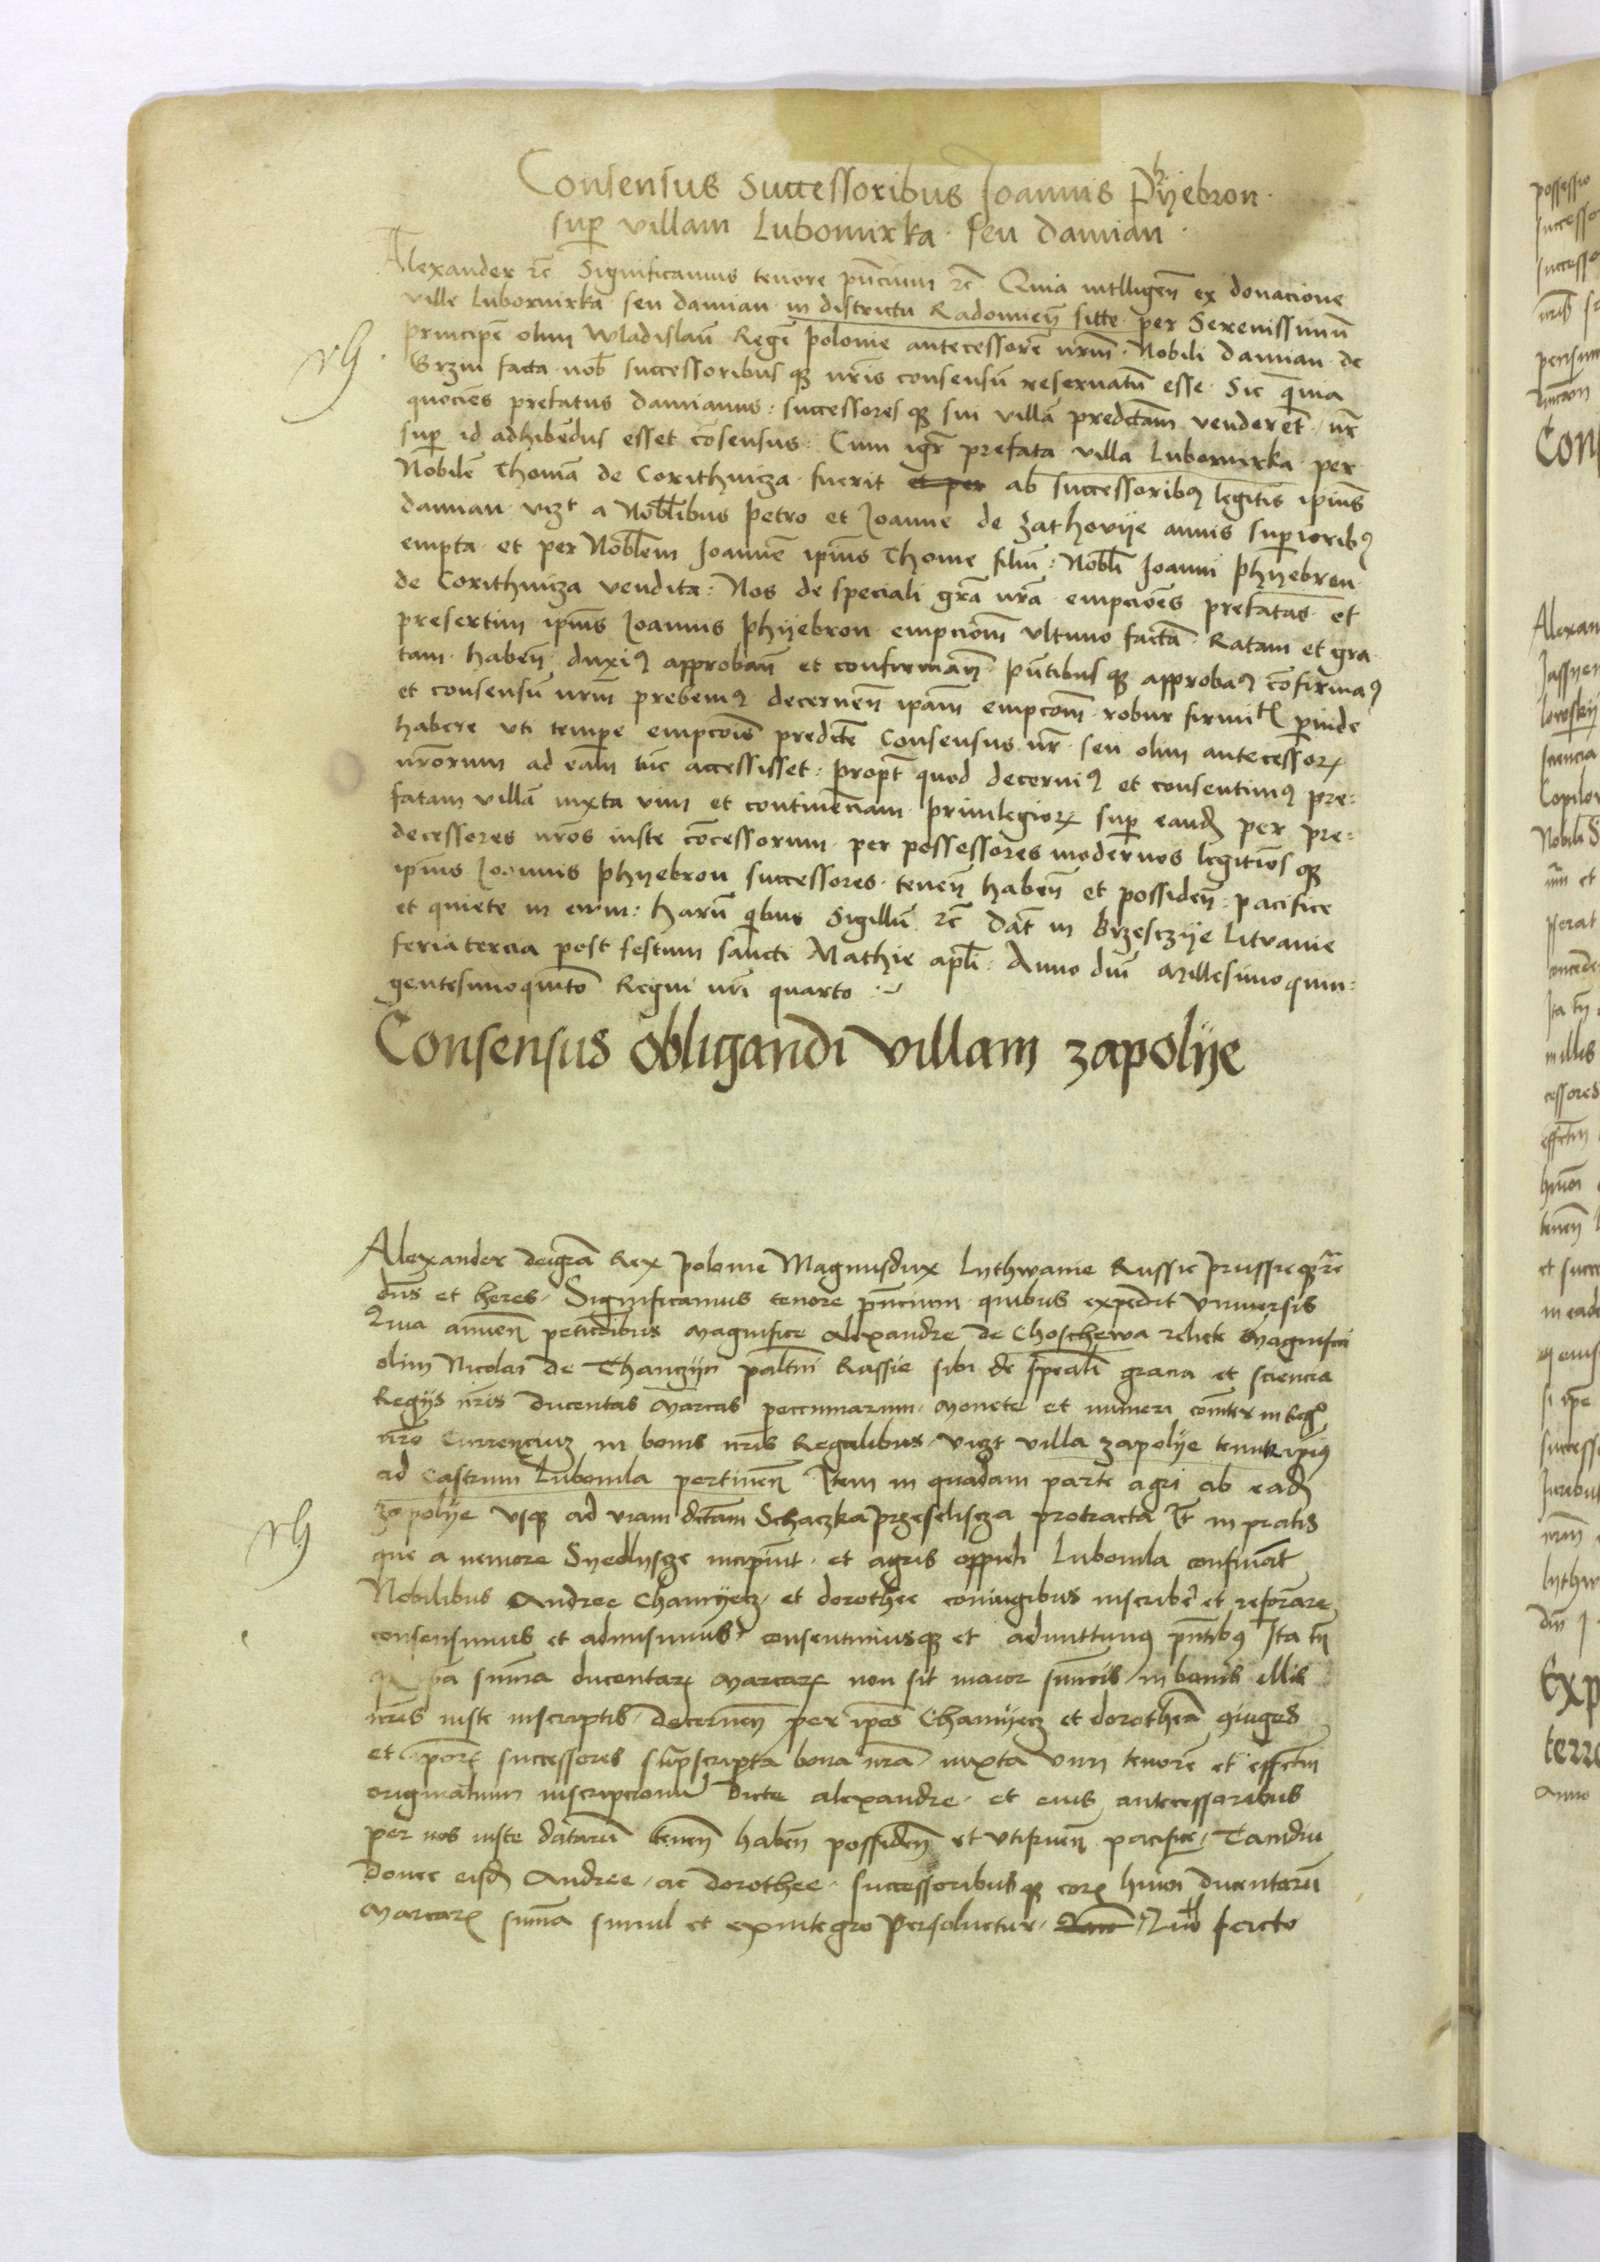 Consensus Successoribus Joannis Phyebron
sup villam Lubomirka seu Damian
Alexander rc̃ Significamus tenore pñcium rc̃ Quia intlligeñ ex donacione
ville Lubomirka seu damian in districtu Radomieñ sitte per Serenissimũ
principẽ olim Wladislaũ Regẽ polonie antecessorẽ nr̃m Nobili damian de
facta nob̃ successoribus qȝ nr̃is consensũ reservatũ esse Sic quia
quociẽs prefatus damianus successores qȝ sui villã predictam venderet nr̃
sup id adhibẽdus esset cõsensus Cum igr̃ prefata villa Lubomirka per
Nobilẽ Thomã de Corithniza fuerit et per ab successoribꝰ legitis ipiũs
damian vizt a Nobl̃ibus petro et Joanne de zathovije annis superioribꝰ
empta et per Nobl̃em Joannẽ ipiũs Thome filiũ Nobl̃i Joanni phyebron
de Corithniza vendita Nos de speciali gr̃a nr̃a empciões prefatas et
presertim ipiũs Joannis phyebron empcionẽ ultimo factã Ratam et gra
tam habeñ duxiꝰ approbañ et confirmañ pñtibus qȝ approbaꝰ cõfirmaꝰ
et consensũ nr̃m prebemꝰ decerneñ ipam̃ empcõm robur firmitˢ perinde
habere uti tempe empcõis predicte consensus nr̃ seu olim antecessorꝝ
nr̃orum ad eam̃ tũc accessisset propt̃ quod decerniꝰ et consentimꝰ pre
fatam villã iuxta vim et continẽciam privilegiorꝝ sup eandẽ per pre
decessores nr̃os iuste cõcessorum per possessores modernos legitiõs qȝ
ipiũs Joannis phyebron successores teneñ habeñ et possideñ pacifice
et quiete in evm̃ harũ qibus Sigillũ rc̃ Dat̃ in Brzesczije Litvanie
feria tercia post festum sancti Mathie apl̃i Anno dñi Millesimo quin
gentesimoquinto Regni nr̃i quarto
Consensus obligandi villam zapolije
Alexander deigr̃a Rex polonie Magnusdux Lythwanie Russie prussieqȝ rc̃
dñs et heres Significamus tenore pñcium quibus expedit Universis
Quia annueñ peticõibus Magnifice Alexandre de Choschewa relicte Magnifici
olim Nicolai de Thanczijn palt̃ini Russie sibi de speali gracia et sciencia
Regijs nr̃is Ducentas Marcas peccuniarum Monete et numeri com̃ter in Regº
nr̃o Currenciuȝ in bonis nr̃is Regalibus vizt villa zapolije tenute ipiꝰ
ad castrum Lubomla pertineñ Item in quadam parte agri ab eadẽ
zapolije usqȝ ad viam dictam Schaczka przesclisza protracta It̃ in pratis
que a nemore Syedlysze incipiũt et agris oppidi Lubomla confinãt
Nobilibus Andree Chamyecz et dorothee coniugibus inscribẽ et reforãre
consensimus et admisimus consentimusqȝ et admittimꝰ pñtibꝰ Ita tñ
ipã sum̃a ducentarꝝ Marcarꝝ non sit maior sum̃is in bonis illis
nr̃is iuste inscriptis decerneñ per ipos̃ Chamyecz et dorotheã cõiuges
et iporꝝ̃ successores suprascripta bona nr̃a iuxta vim tenorẽ et effectũ
originalium inscripcionũ dicte Alexandre et eius antecessoribus
per nos iuste datarũ teneñ habeñ possideñ et utifrueñ pacifice Tamdiu
donec eisdẽ Andree ac dorothee successoribusqȝ eorꝝ huiõi ducentarũ
Marcarꝝ sum̃a simul et exintegro persolvetur Quo facto